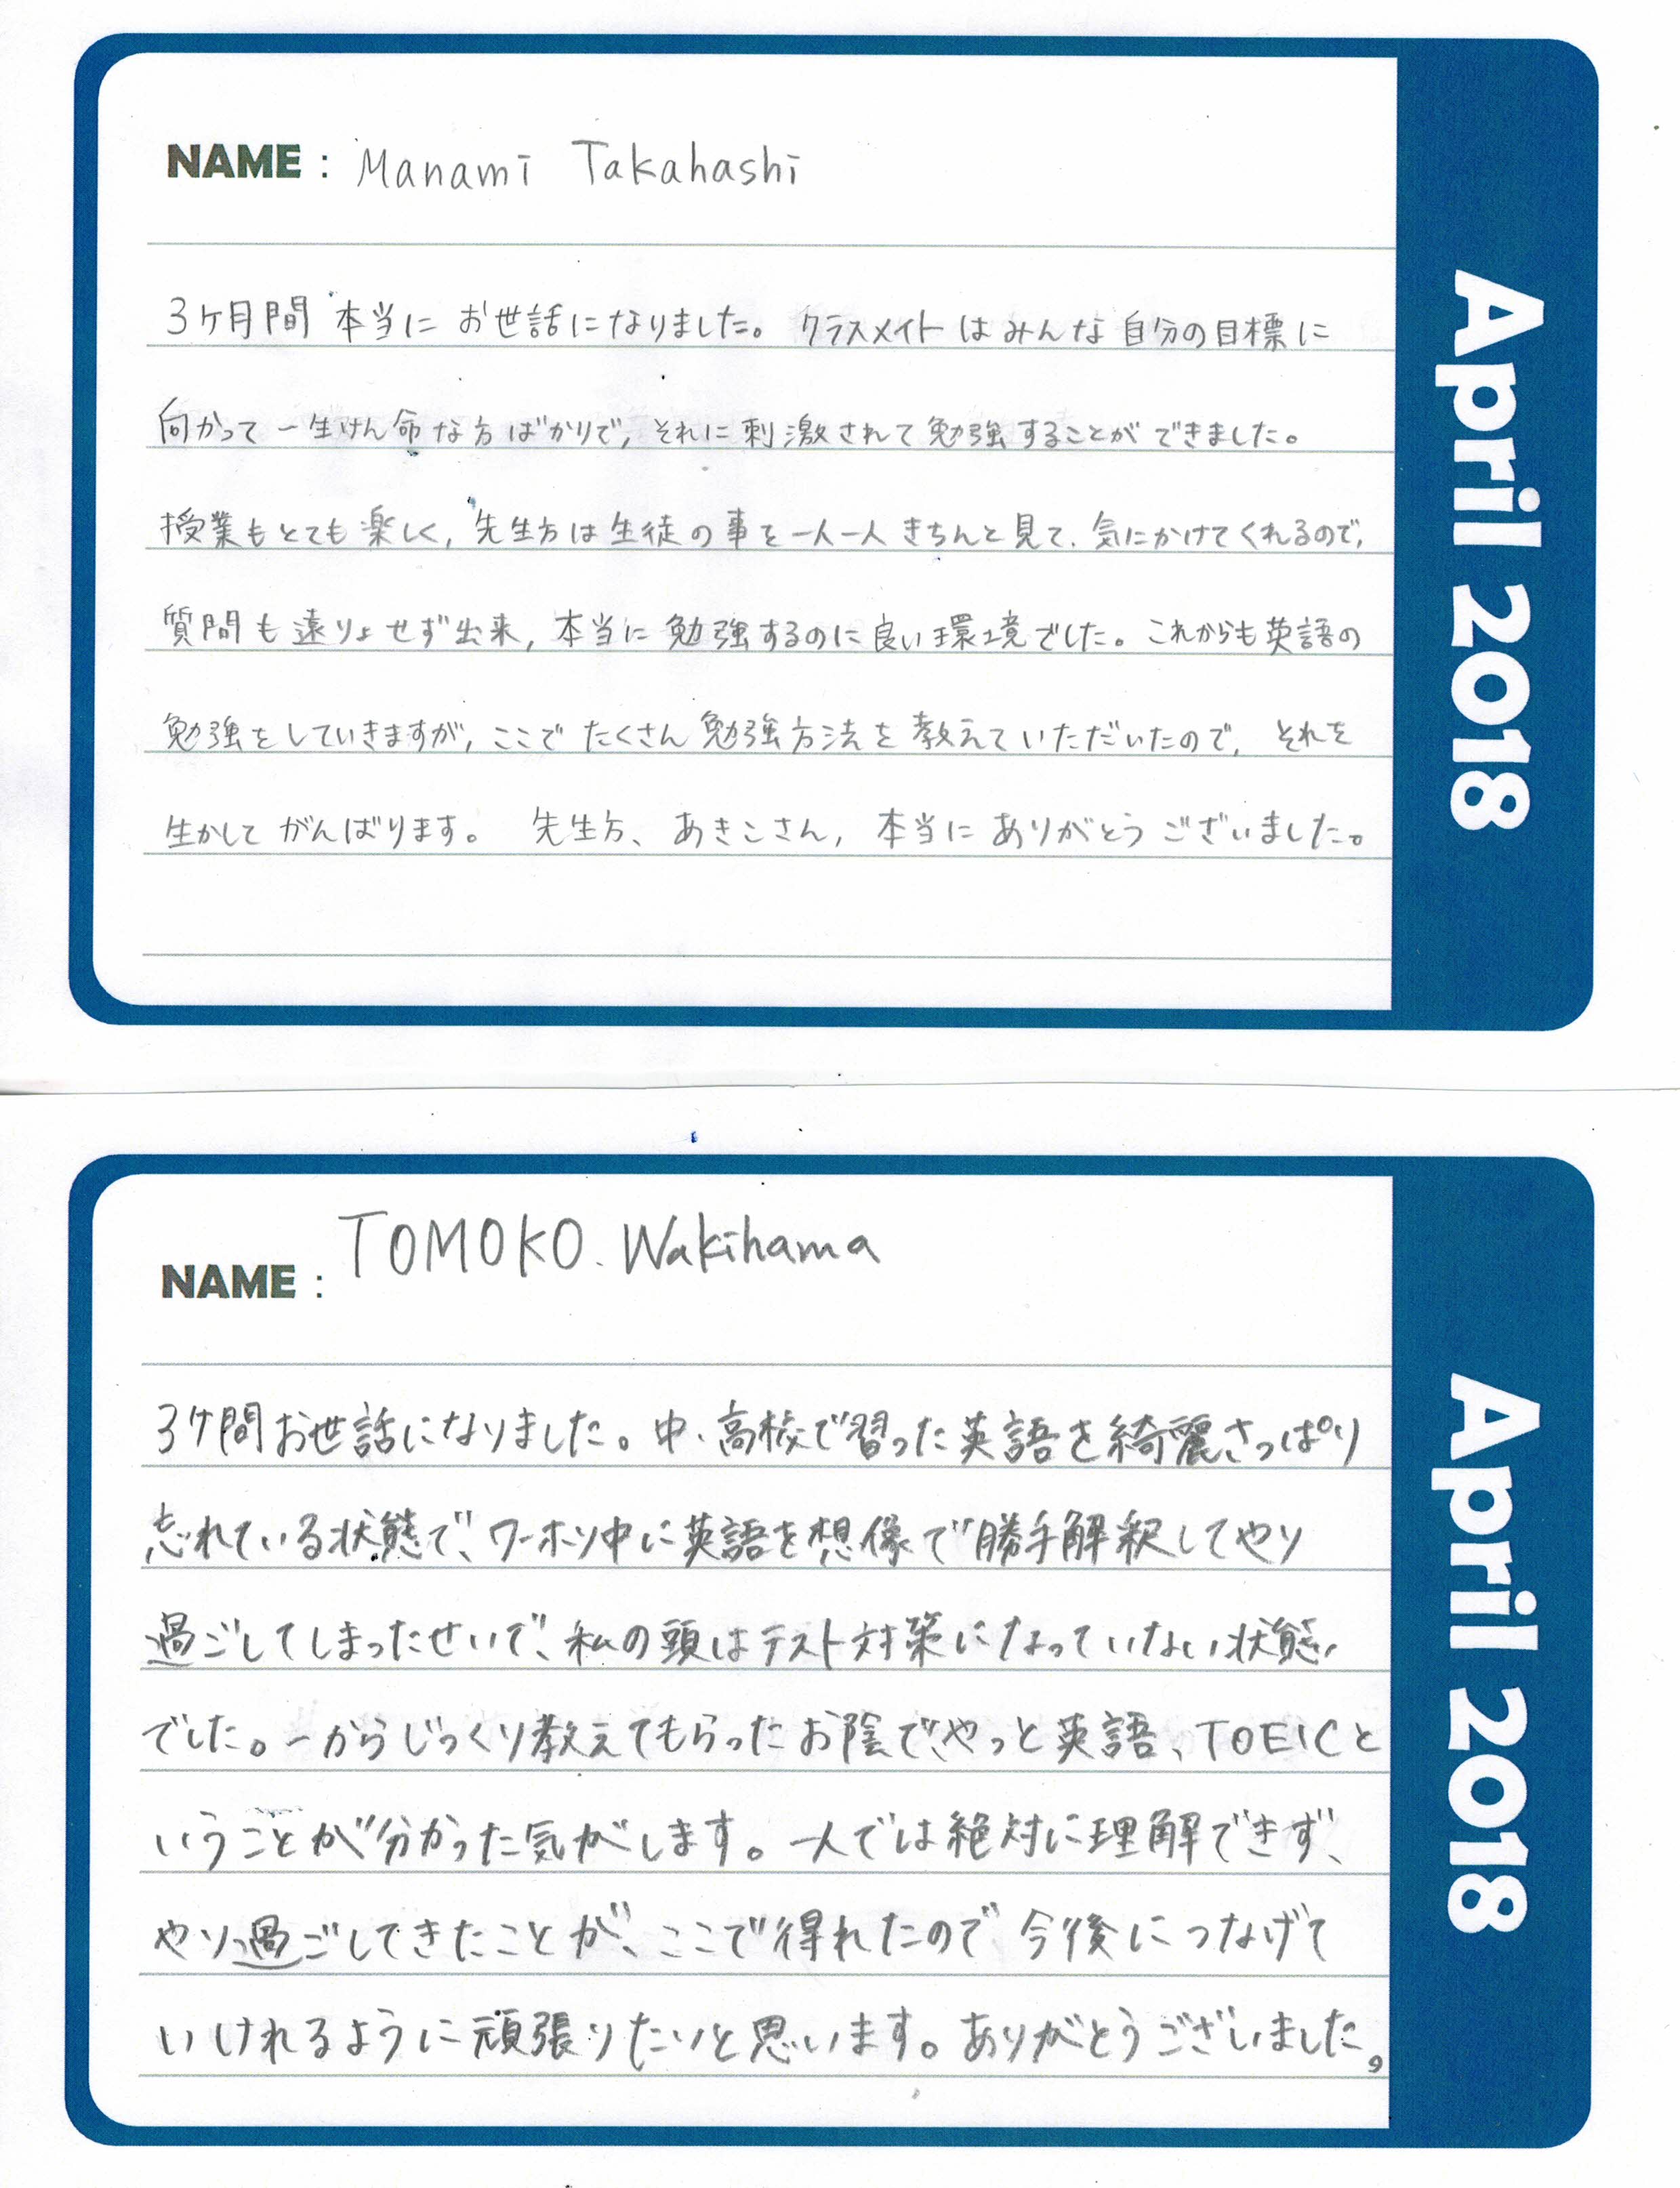 NAME : Manami Takahashi
3ヶ月間 本当に お世話になりました。 クラスメイトはみんな自分の目標に
向かって一生けん命な方ばかりで, それに刺激されて勉強することができました。
授業もとても楽しく, 先生方は生徒の事を一人一人きちんと見て、気にかけてくれるので,
質問も遠りょせず出来, 本当に勉強するのに良い環境でした。これからも英語の
勉強をしていきますが, ここでたくさん勉強方法を教えていただいたので, それを
生かしてがんばります。 先生方、あきこさん, 本当にありがとうございました。
April 2018
NAME : TOMOKO. Wakihama
3ケ間お世話になりました。中、高校で習った英語を綺麗さっぱり
忘れている状態で、ワーホリ中に英語を想像で勝手解釈してやり
過ごしてしまったせいで、私の頭はテスト対策になっていない状態
でした。一からじっくり教えてもらったお陰で、やっと英語、TOEICと
いうことが分かった気がします。一人では絶対に理解できず、
やり過ごしてきたことが、ここで得れたので今後につなげて
いけれるように頑張りたいと思います。ありがとうございました。
April 2018